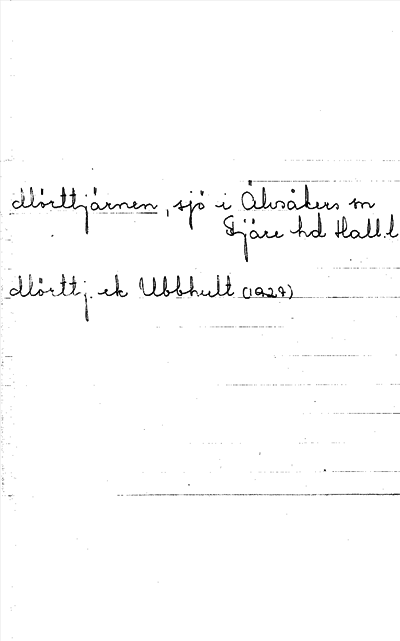 Mörttjärnen, sjö i Älvsåkers sn
Fjäre hd Hall. l
Mörttj. ek Ubbhult (1927)